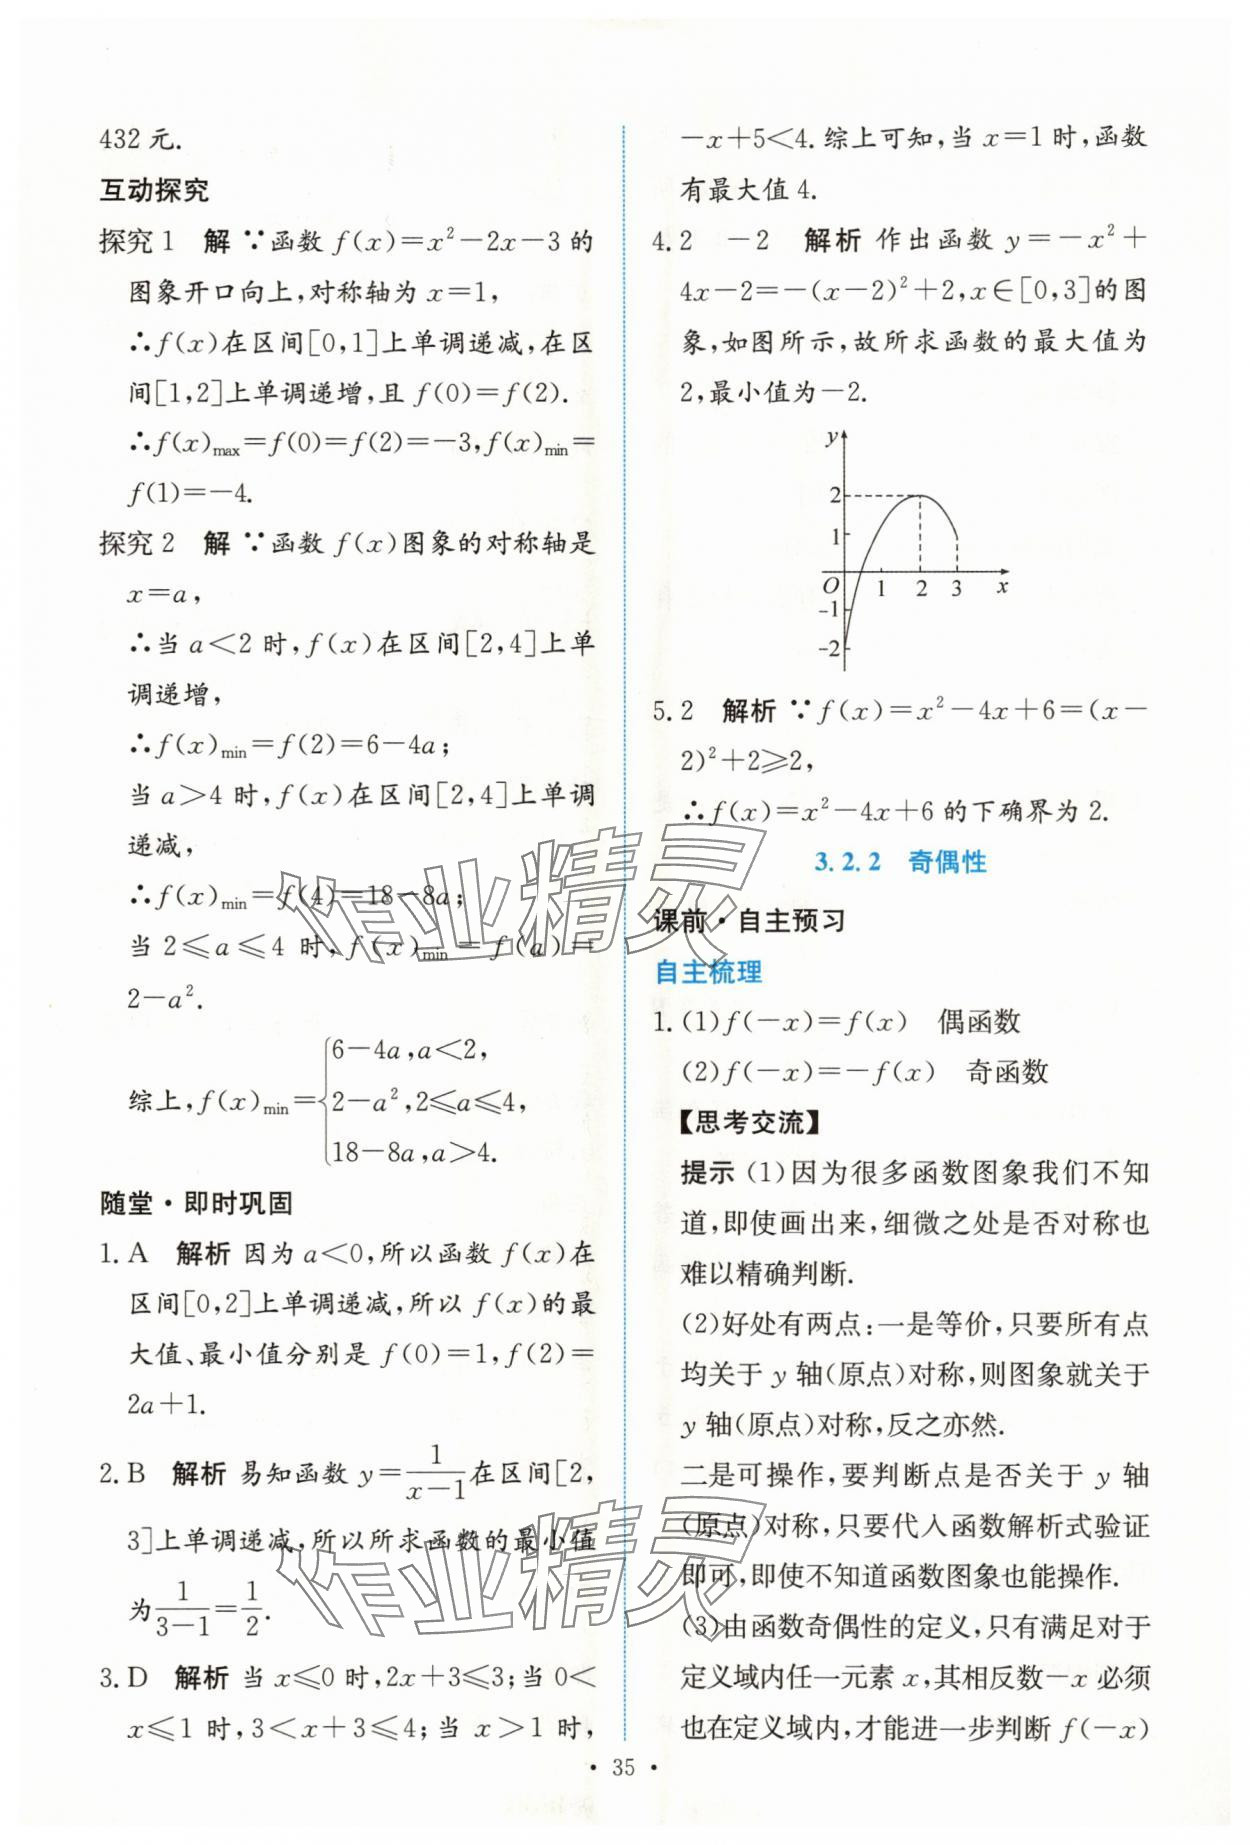 432元.
互动探究
探究1 解 ∵函数 f(x)=x²-2x-3的
图象开口向上,对称轴为 x=1,
∴f(x)在区间[0,1]上单调递减,在区
间[1,2]上单调递增,且 f(0)=f(2).
∴f(x)max=f(0)=f(2)=-3,f(x)min=
f(1)=-4.
探究2 解 ∵函数 f(x)图象的对称轴是
x=a,
∴当 a<2 时,f(x)在区间[2,4]上单
调递增,
∴f(x)min=f(2)=6-4a;
当 a>4 时,f(x)在区间[2,4]上单调
递减,
∴f(x)min=f(4)=18-8a;
当 2≤a≤4 时,f(x)min=f(a)=
2-a².
综上,f(x)min={6-4a,a<2,
2-a²,2≤a≤4,
18-8a,a>4.
随堂·即时巩固
1. A 解析 因为 a<0,所以函数 f(x)在
区间[0,2]上单调递减,所以 f(x)的最
大值、最小值分别是 f(0)=1,f(2)=
2a+1.
2. B 解析 易知函数 y=1/(x-1)在区间[2,
3]上单调递减,所以所求函数的最小值
为1/(3-1)=1/2.
3. D 解析 当 x≤0 时,2x+3≤3;当 0<
x≤1 时,3<x+3≤4;当 x>1 时,
-x+5<4.综上可知,当 x=1 时,函数
有最大值4.
4. 2 -2 解析 作出函数 y=-x²+
4x-2=-(x-2)²+2,x∈[0,3]的图
象,如图所示,故所求函数的最大值为
2,最小值为-2.
y
2
1
O 1 2 3 x
-1
-2
5. 2 解析 ∵f(x)=x²-4x+6=(x-
2)²+2≥2,
∴f(x)=x²-4x+6的下确界为2.
3.2.2 奇偶性
课前·自主预习
自主梳理
1. (1)f(-x)=f(x) 偶函数
(2)f(-x)=-f(x) 奇函数
【思考交流】
提示 (1)因为很多函数图象我们不知
道,即使画出来,细微之处是否对称也
难以精确判断.
(2)好处有两点:一是等价,只要所有点
均关于 y 轴(原点)对称,则图象就关于
y 轴(原点)对称,反之亦然.
二是可操作,要判断点是否关于 y 轴
(原点)对称,只要代入函数解析式验证
即可,即使不知道函数图象也能操作.
(3)由函数奇偶性的定义,只有满足对于
定义域内任一元素 x,其相反数-x 必须
也在定义域内,才能进一步判断 f(-x)
· 35 ·
作业精灵
作业精灵